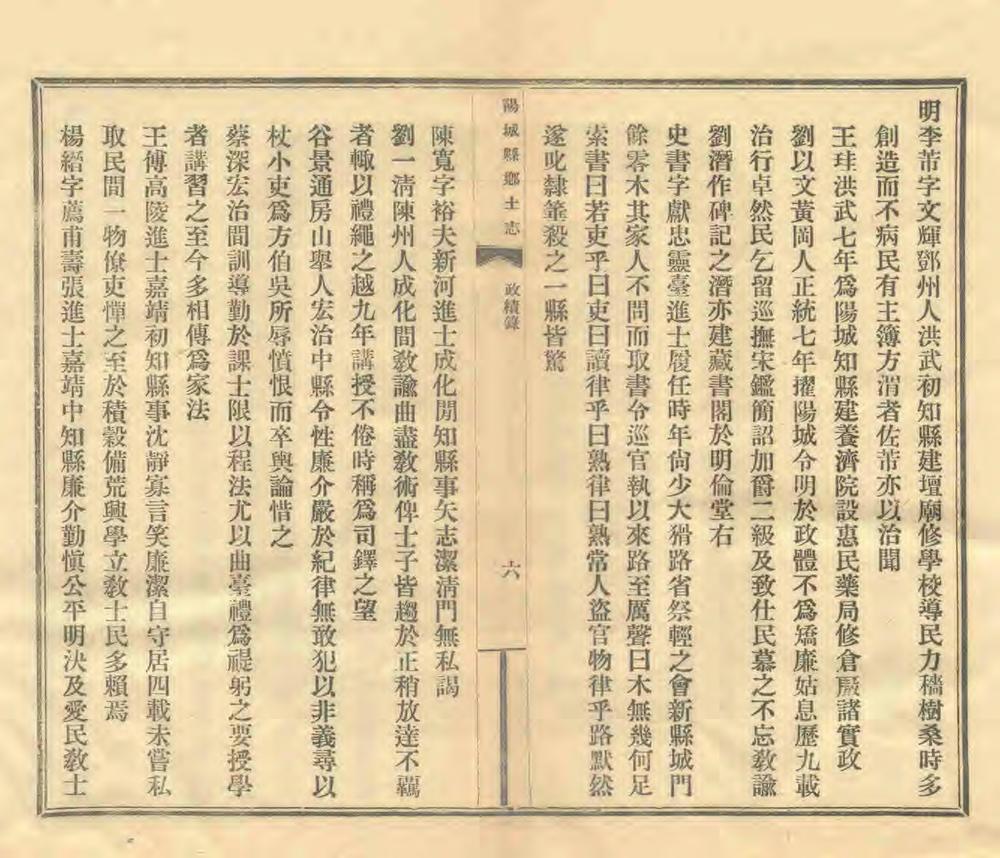 明李芾字文輝鄧州人洪武初知縣建壇廟修學校導民力穡樹桑時多
創造而不病民有王簿方渭者佐芾亦以治聞
王玤洪武七年爲陽城知縣建養濟院設惠民藥局修倉厫諸實政
劉以文黃岡人正統七年擢陽城令明於政體不爲矯廉姑息歷九載
治行卓然民乞留巡撫宋鑑簡詔加爵二級及致仕民慕之不忘敎諭
劉潛作碑記之潛亦建藏書閣於明倫堂右
史書字獻忠靈臺進士履任時年尙少大猾路省祭輕之會新縣城門
餘零木其家人不問而取書令巡官執以來路至厲聲曰木無幾何足
索書曰若吏乎曰吏曰讀律乎曰熟律曰熟常人盜官物律乎路默然
遂叱隸箠殺之一縣皆驚
陽城縣鄉土志
政績錄
六
陳寬字裕夫新河進士成化間知縣事矢志潔淸門無私謁
劉一淸陳州人成化間敎諭曲盡敎術俾士子皆趨於正稍放達不羈
者輒以禮繩之越九年講授不倦時稱爲司鐸之望
谷景通房山舉人宏治中縣令性廉介嚴於紀律無敢犯以非義尋以
杖小吏爲方伯吳所辱憤恨而卒輿論惜之
蔡深宏治間訓導勤於課士限以程法尤以曲臺禮爲禔躬之要授學
者講習之至今多相傳爲家法
王傅高陵進士嘉靖初知縣事沈靜寡言笑廉潔自守居四載未嘗私
取民間一物僚吏憚之至於積穀備荒興學立敎士民多賴焉
楊縉字薦甫壽張進士嘉靖中知縣廉介勤愼公平明決及愛民敎士